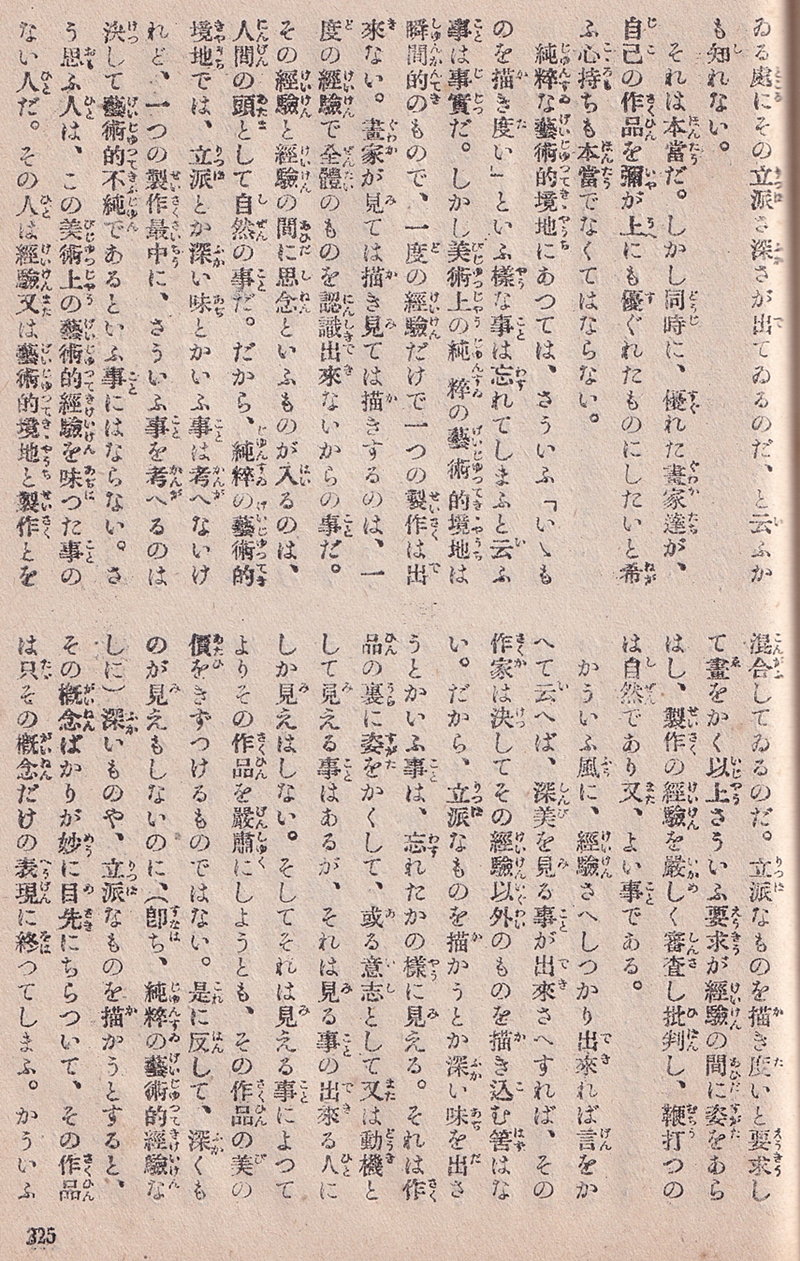 ゐる處にその立派さ深さが出てゐるのだ、と云ふか
も知れない。
それは本當だ。しかし同時に、優れた畫家達が、
自己の作品を彌が上にも優ぐれたものにしたいと希
ふ心持ちも本當でなくてはならない。
純粹な藝術的境地にあつては、さういふ「いゝも
のを描き度い」といふ樣な事は忘れてしまふと云ふ
事は事實だ。しかし美術上の純粹の藝術的境地は
瞬間的のもので、一度の經驗だけで一つの製作は出
來ない。畫家が見ては描き見ては描きするのは、一
度の經驗で全體のものを認識出來ないからの事だ。
その經驗と經驗の間に思念といふものが入るのは、
人間の頭として自然の事だ。だから、純粹の藝術的
境地では、立派とか深い味とかいふ事は考へないけ
れど、一つの製作最中に、さういふ事を考へるのは
決して藝術的不純であるといふ事にはならない。さ
う思ふ人は、この美術上の藝術的經驗を味つた事の
ない人だ。その人は經驗又は藝術的境地と製作とを
混合してゐるのだ。立派なものを描き度いと要求し
て畫をかく以上さういふ要求が經驗の間に姿をあら
はし、製作の經驗を嚴しく審査し批判し、鞭打つの
は自然であり又、よい事である。
かういふ風に、經驗さへしつかり出來れば言をか
へて云へば、深美を見る事が出來さへすれば、その
作家は決してその經驗以外のものを描き込む筈はな
い。だから、立派なものを描かうとか深い味を出さ
うとかいふ事は、忘れたかの樣に見える。それは作
品の裏に姿をかくして、或る意志として又は動機と
して見える事はあるが、それは見る事の出來る人に
しか見えはしない。そしてそれは見える事によつて
よりその作品を嚴肅にしようとも、その作品の美の
價をきずつけるものではない。是に反して、深くも
のが見えもしないのに、（卽ち、純粹の藝術的經驗な
しに）深いものや、立派なものを描かうとすると、
その槪念ばかりが妙に目先にちらついて、その作品
は只その槪念だけの表現に終つてしまふ。かういふ
325